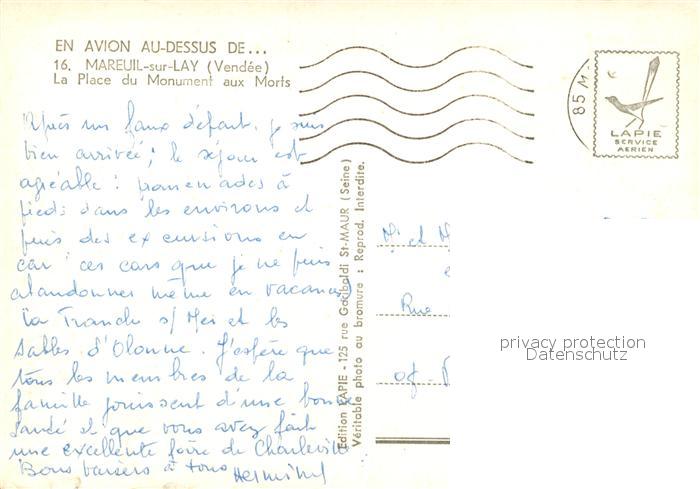 EN AVION AU-DESSUS DE...
16. MAREUIL-sur-LAY (Vendée)
La Place du Monument aux Morts
Après un faux départ, je suis
bien arrivée; le séjour est
agréable : promenades à
pieds dans les environs et
puis des excursions en
car ces cars que je ne puis
abandonner même en vacances
La Tranche s/ Mer et les
Sables d'Olonne. J'espère que
tous les membres de la
famille jouissent d'une bonne
santé et que vous avez fait
une excellente foire de Charleville
Bons baisers à tous
Edition LAPIE - 125 rue Garibaldi St-MAUR (Seine)
Véritable photo au bromure : Reprod. Interdite.
85 M
LAPIE
SERVICE
AERIEN
et
Rue
privacy protection
Datenschutz